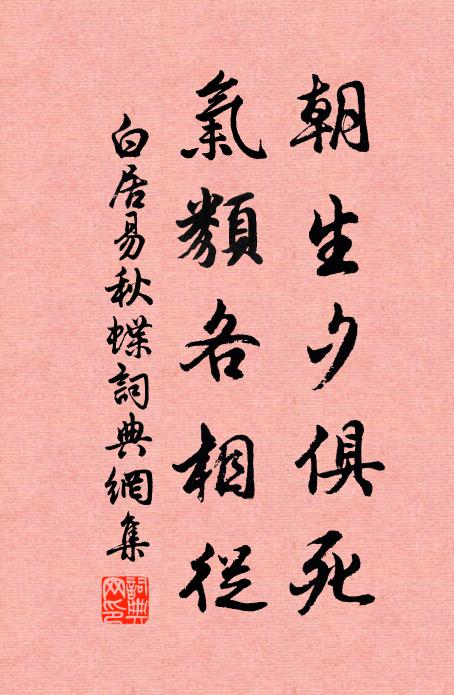 朝生夕俱死
氣類各相從
白居易秋蝶詞典網集
詞典網印